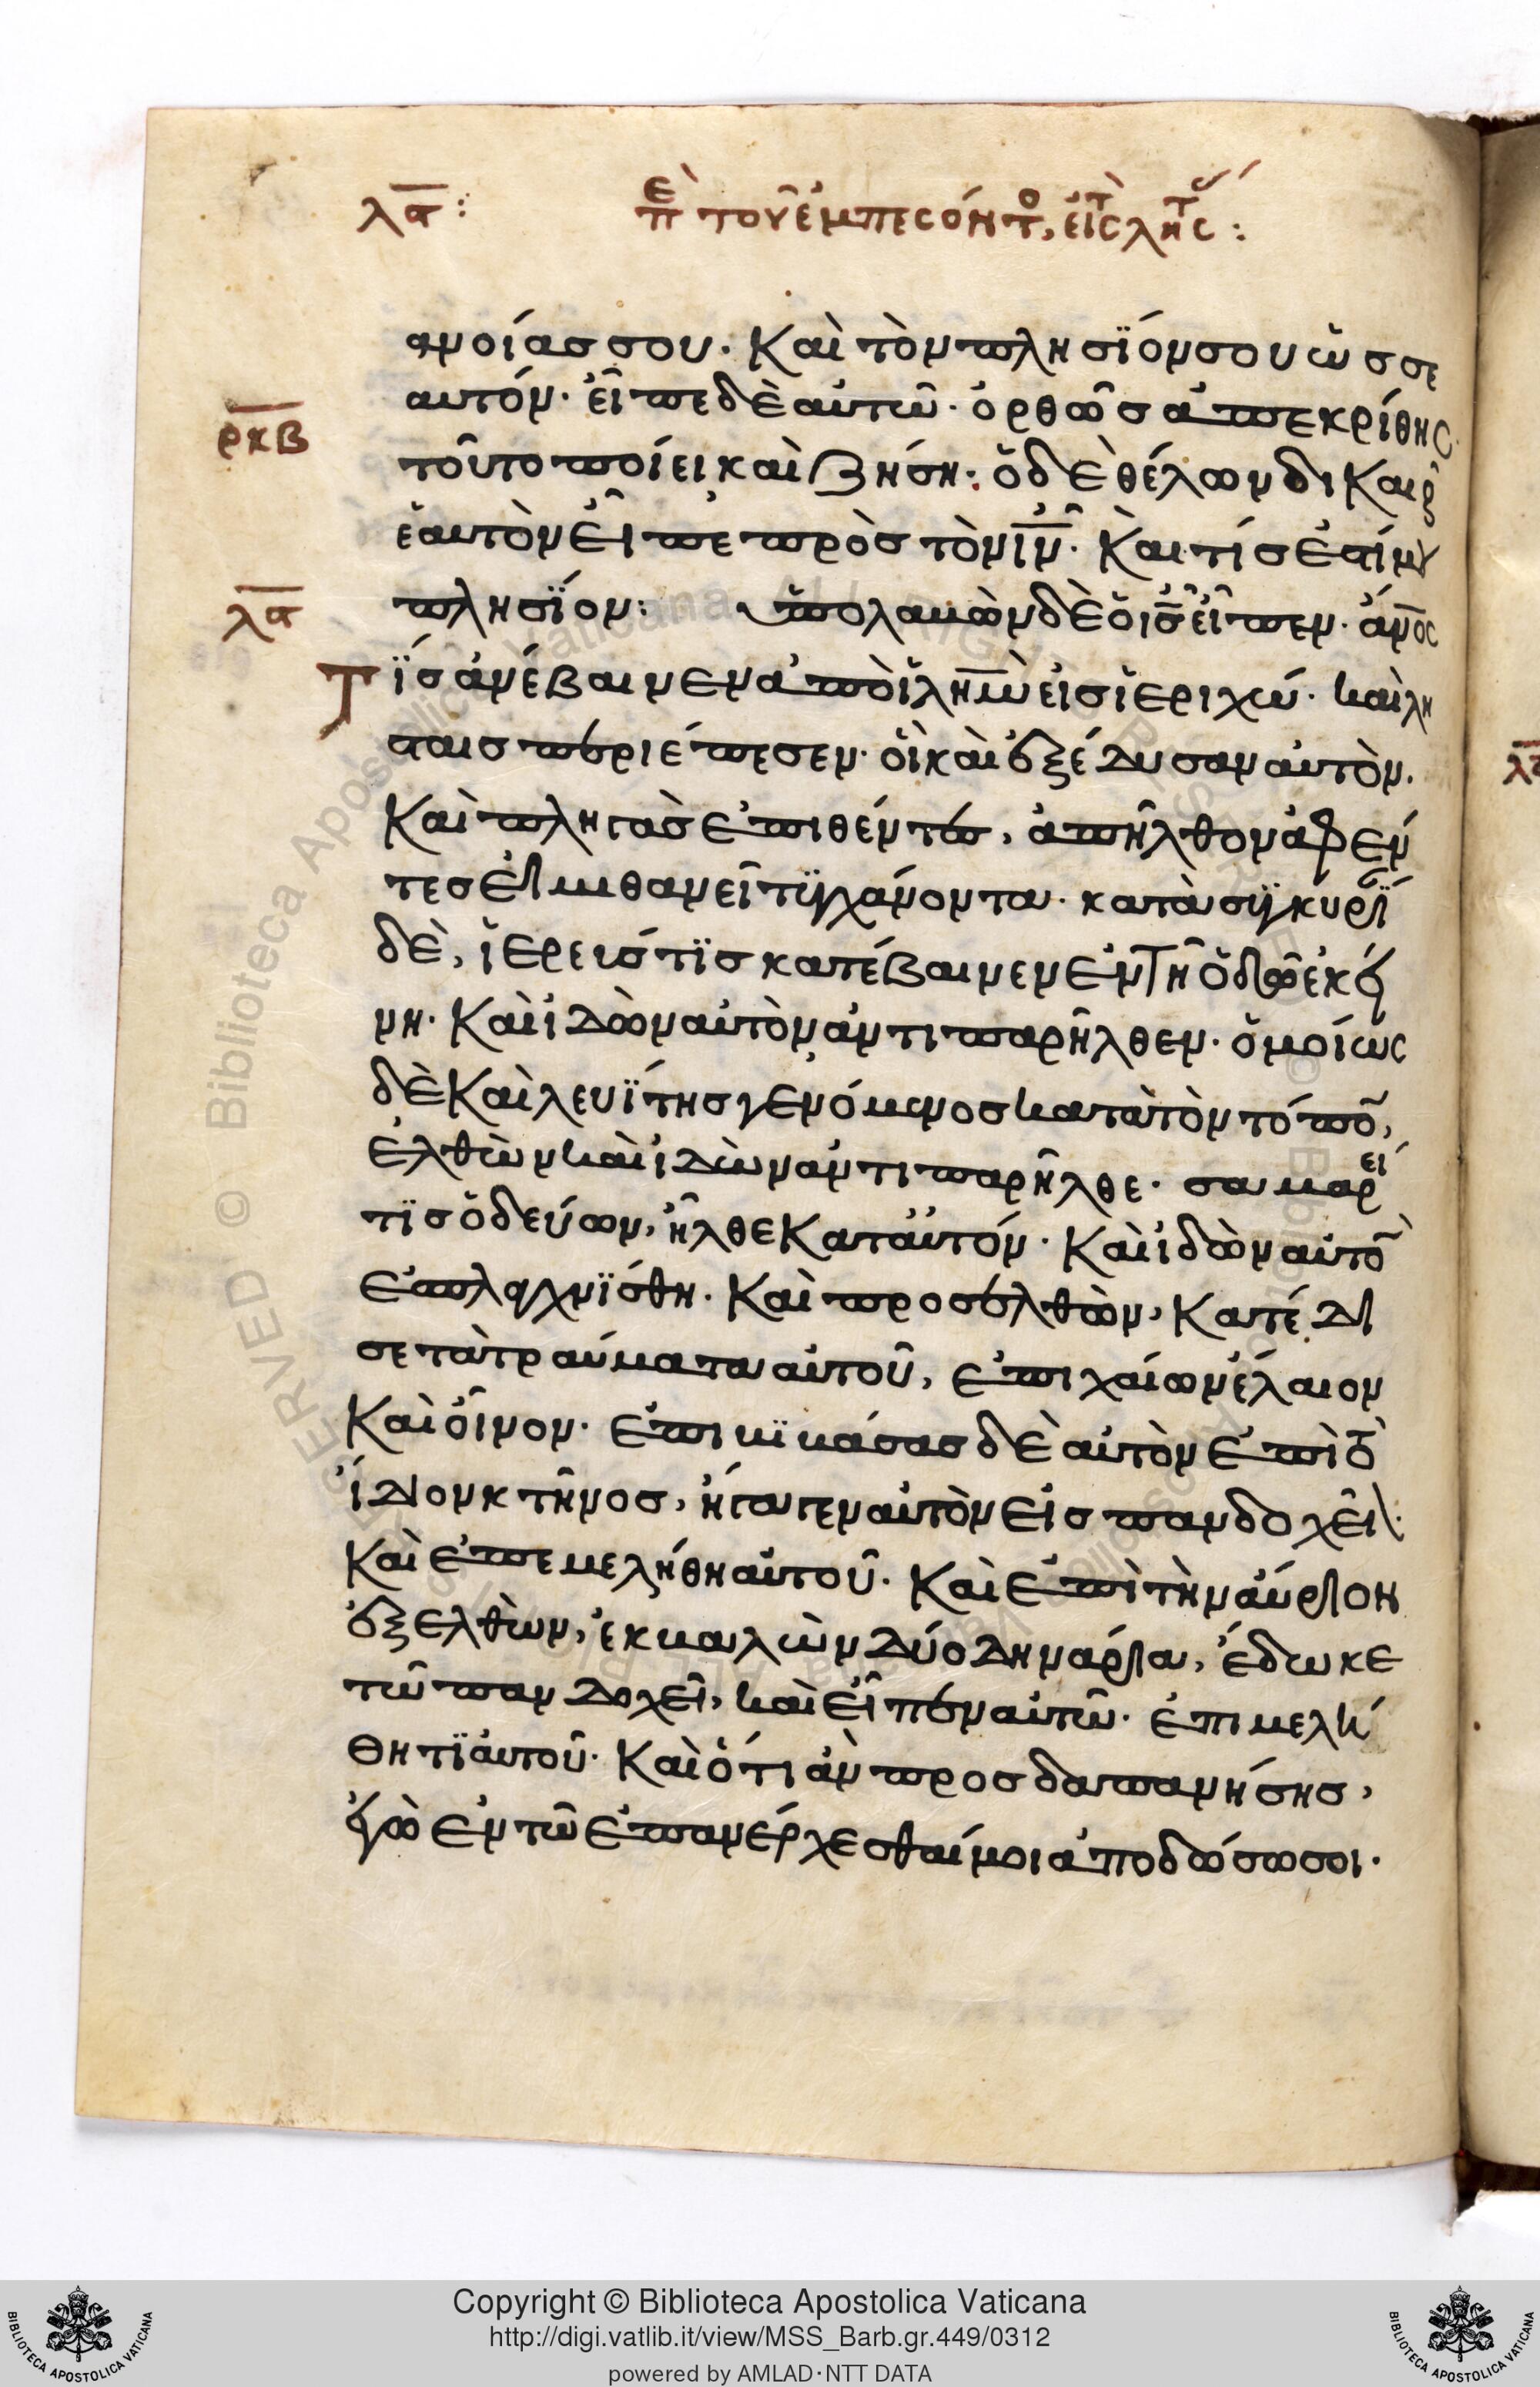 λα: επ τοῦ ἐμπεσόντο, εἰς τ λητς:
ανοίας σου. Καὶ τὸν πλησϊόν σου ὡς σε
ρκβ
αυτόν. εἶπε δὲ αὐτῶ. ὀρθῶς ἀπεκρίθης.
τοῦτο ποίει καὶ ζήση. ὁ δὲ θέλων δικαι
ἑαυτὸν εἶπε πρὸς τὸν ιν. Καὶ τίς ἐστί μου
λα
πλησϊον: ὑπολαβὼν δὲ ὁ ις εἶπεν. ανος
Τϊς ἀνέβαινεν ἀπὸ ιλημ εἰς ἱεριχώ. καὶ λη
σταις περιέπεσεν. οἳ καὶ ἐξέδυσαν αὐτὸν.
Καὶ πληγὰς ἐπιθέντες, ἀπῆλθον ἀφέν
τες ἡμιθανεῖ τυγχάνοντα. κατὰ συγκυρί
δὲ, ἱερεύς τϊς κατέβαινεν ἐν τῆ ὁδῶ ἐκεί
νη. Καὶ ἰδὼν αὐτὸν ἀντιπαρῆλθεν. ὁμοίως
δὲ Καὶ λευϊτης γενόμενος κατὰ τὸν τόπο,
ἐλθὼν καὶ ἰδὼν ἀντιπαρῆλθε. σαμαρεί
τϊς ὁδεύων, ἦλθε Κατ αὐτόν. Καὶ ἰδὼν αὐτὸ
ἐσπλαγχνϊσθη. Καὶ προσελθὼν, Κατέδη
σε τὰ τραύματα αὐτοῦ, ἐπιχέων ἔλαιον
Καὶ οἶνον. ἐπιβϊβάσας δὲ αὐτὸν ἐπὶ τὸ
ἴδιον κτῆνος, ἤγαγεν αὐτὸν εἰς πανδοχεῖ.
Καὶ ἐπεμελήθη αὐτοῦ. Καὶ ἐπὶ τὴν αὔριον
ἐξελθὼν, ἐκβαλὼν δύο δηνάρια, ἔδωκε
τῶ πανδοχεῖ, καὶ εἶπεν αὐτῶ. ἐπιμελή
θητϊ αὐτοῦ. Καὶ ὅτι ἀν προσδαπανήσης,
ἐγὼ ἐν τῶ ἐπανέρχεσθαί μοι ἀποδώσω σοι.
Copyright © Biblioteca Apostolica Vaticana
http://digi.vatlib.it/view/MSS_Barb.gr.449/0312
powered by AMLAD·NTT DATA
BIBLIOTECA APOSTOLICA VATICANA
BIBLIOTECA APOSTOLICA VATICANA